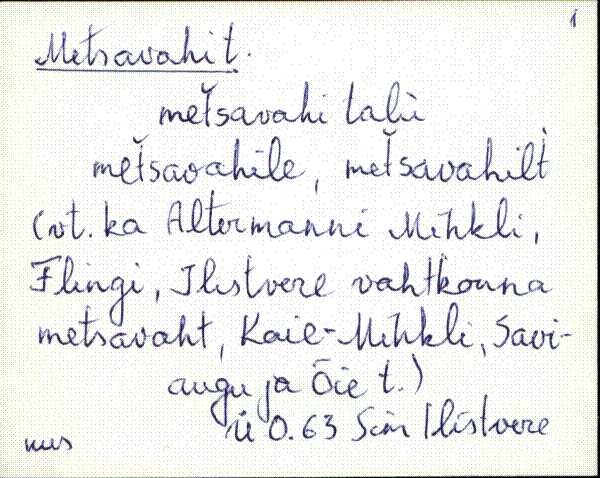 1
Metsavahi t.
metšavahi talu
metšavahile, metšavahilt
(vt. ka Altermanni Mihkli,
Flingi, Ilistvere vahtkonna
metsavaht, Kaie-Mihkli, Savi-
augu ja Õie t.)
Ü 0.63 SJn Ilistvere
mus